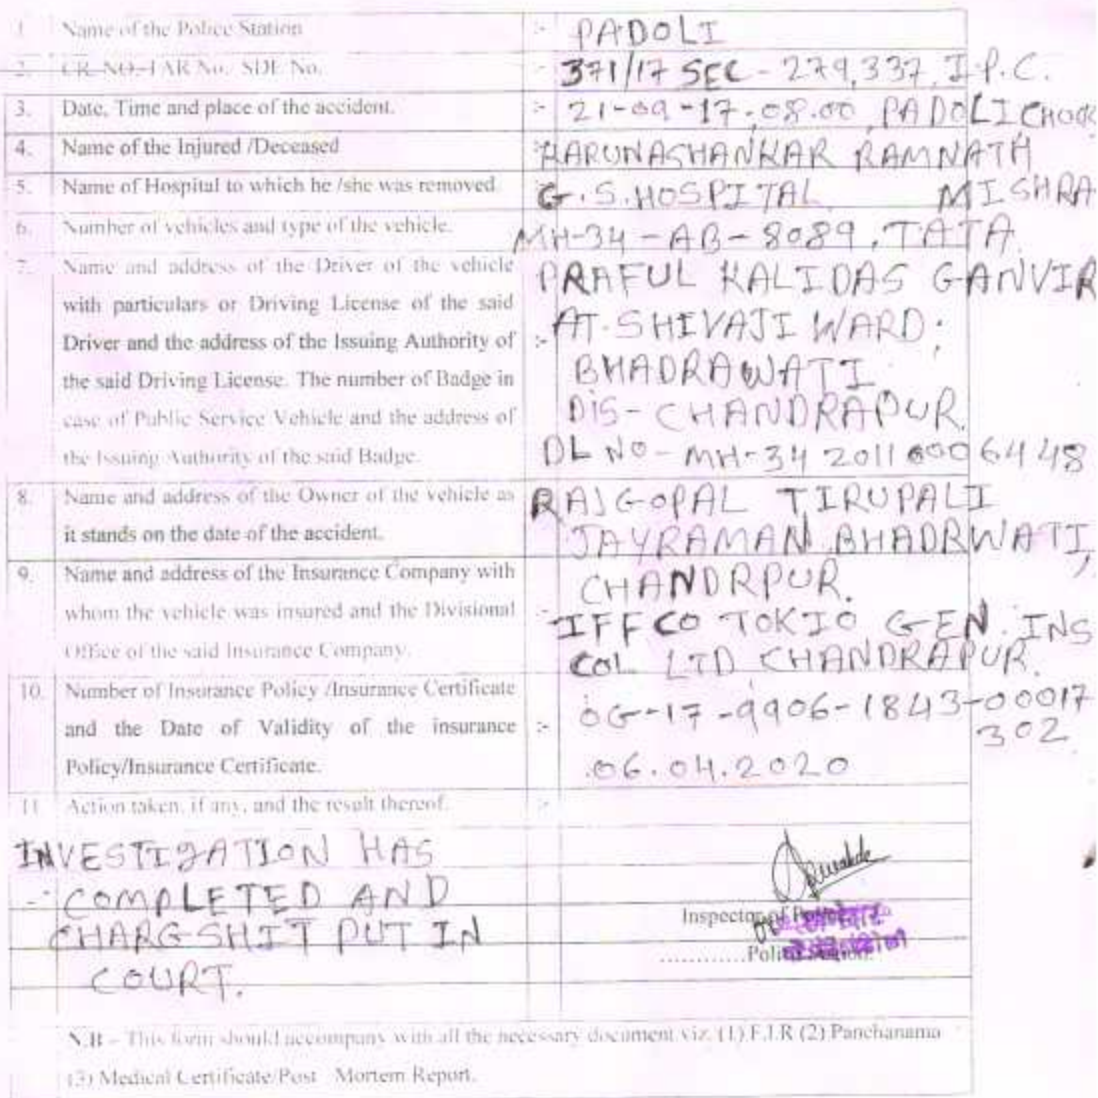 1. Name of the Police Station :- PADOLI
2. CR. NO.-I AR No. SDE No. :- 371/17 SEC - 279,337, I.P.C.
3. Date, Time and place of the accident. :- 21-09-17, 08.00, PADOLI CHOOK
4. Name of the Injured /Deceased :- KARUNASHANKAR RAMNATH
MISHRA
5. Name of Hospital to which he /she was removed. G.S. HOSPITAL
6. Number of vehicles and type of the vehicle. MH-34-AB-8089, TATA
7. Name and address of the Driver of the vehicle
with particulars or Driving License of the said
Driver and the address of the Issuing Authority of :-
the said Driving License. The number of Badge in
case of Public Service Vehicle and the address of
the Issuing Authority of the said Badge.
PRAFUL KALIDAS GANVIR
AT- SHIVAJI WARD;
BHADRAWATI
DIS- CHANDRAPUR.
DL NO- MH-34 2011 0006448
8. Name and address of the Owner of the vehicle as
it stands on the date of the accident.
RAJGOPAL TIRUPALI
JAYRAMAN, BHADRWATI,
CHANDRPUR.
9. Name and address of the Insurance Company with
whom the vehicle was insured and the Divisional :-
Office of the said Insurance Company.
IFFCO TOKIO GEN. INS
COL LTD CHANDRAPUR.
10. Number of Insurance Policy /Insurance Certificate
and the Date of Validity of the insurance :-
Policy/Insurance Certificate.
OG-17-9906-1843-00017
302
.06.04.2020
11 Action taken, if any, and the result thereof. :-
INVESTIGATION HAS
:- COMPLETED AND
CHARG SHIT PUT IN
COURT.
Inspector of Police
.............Police Station.
N.B – This form should accompany with all the necessary document viz. (1) F.I.R (2) Panchanama
(3) Medical Certificate/Post Mortem Report.